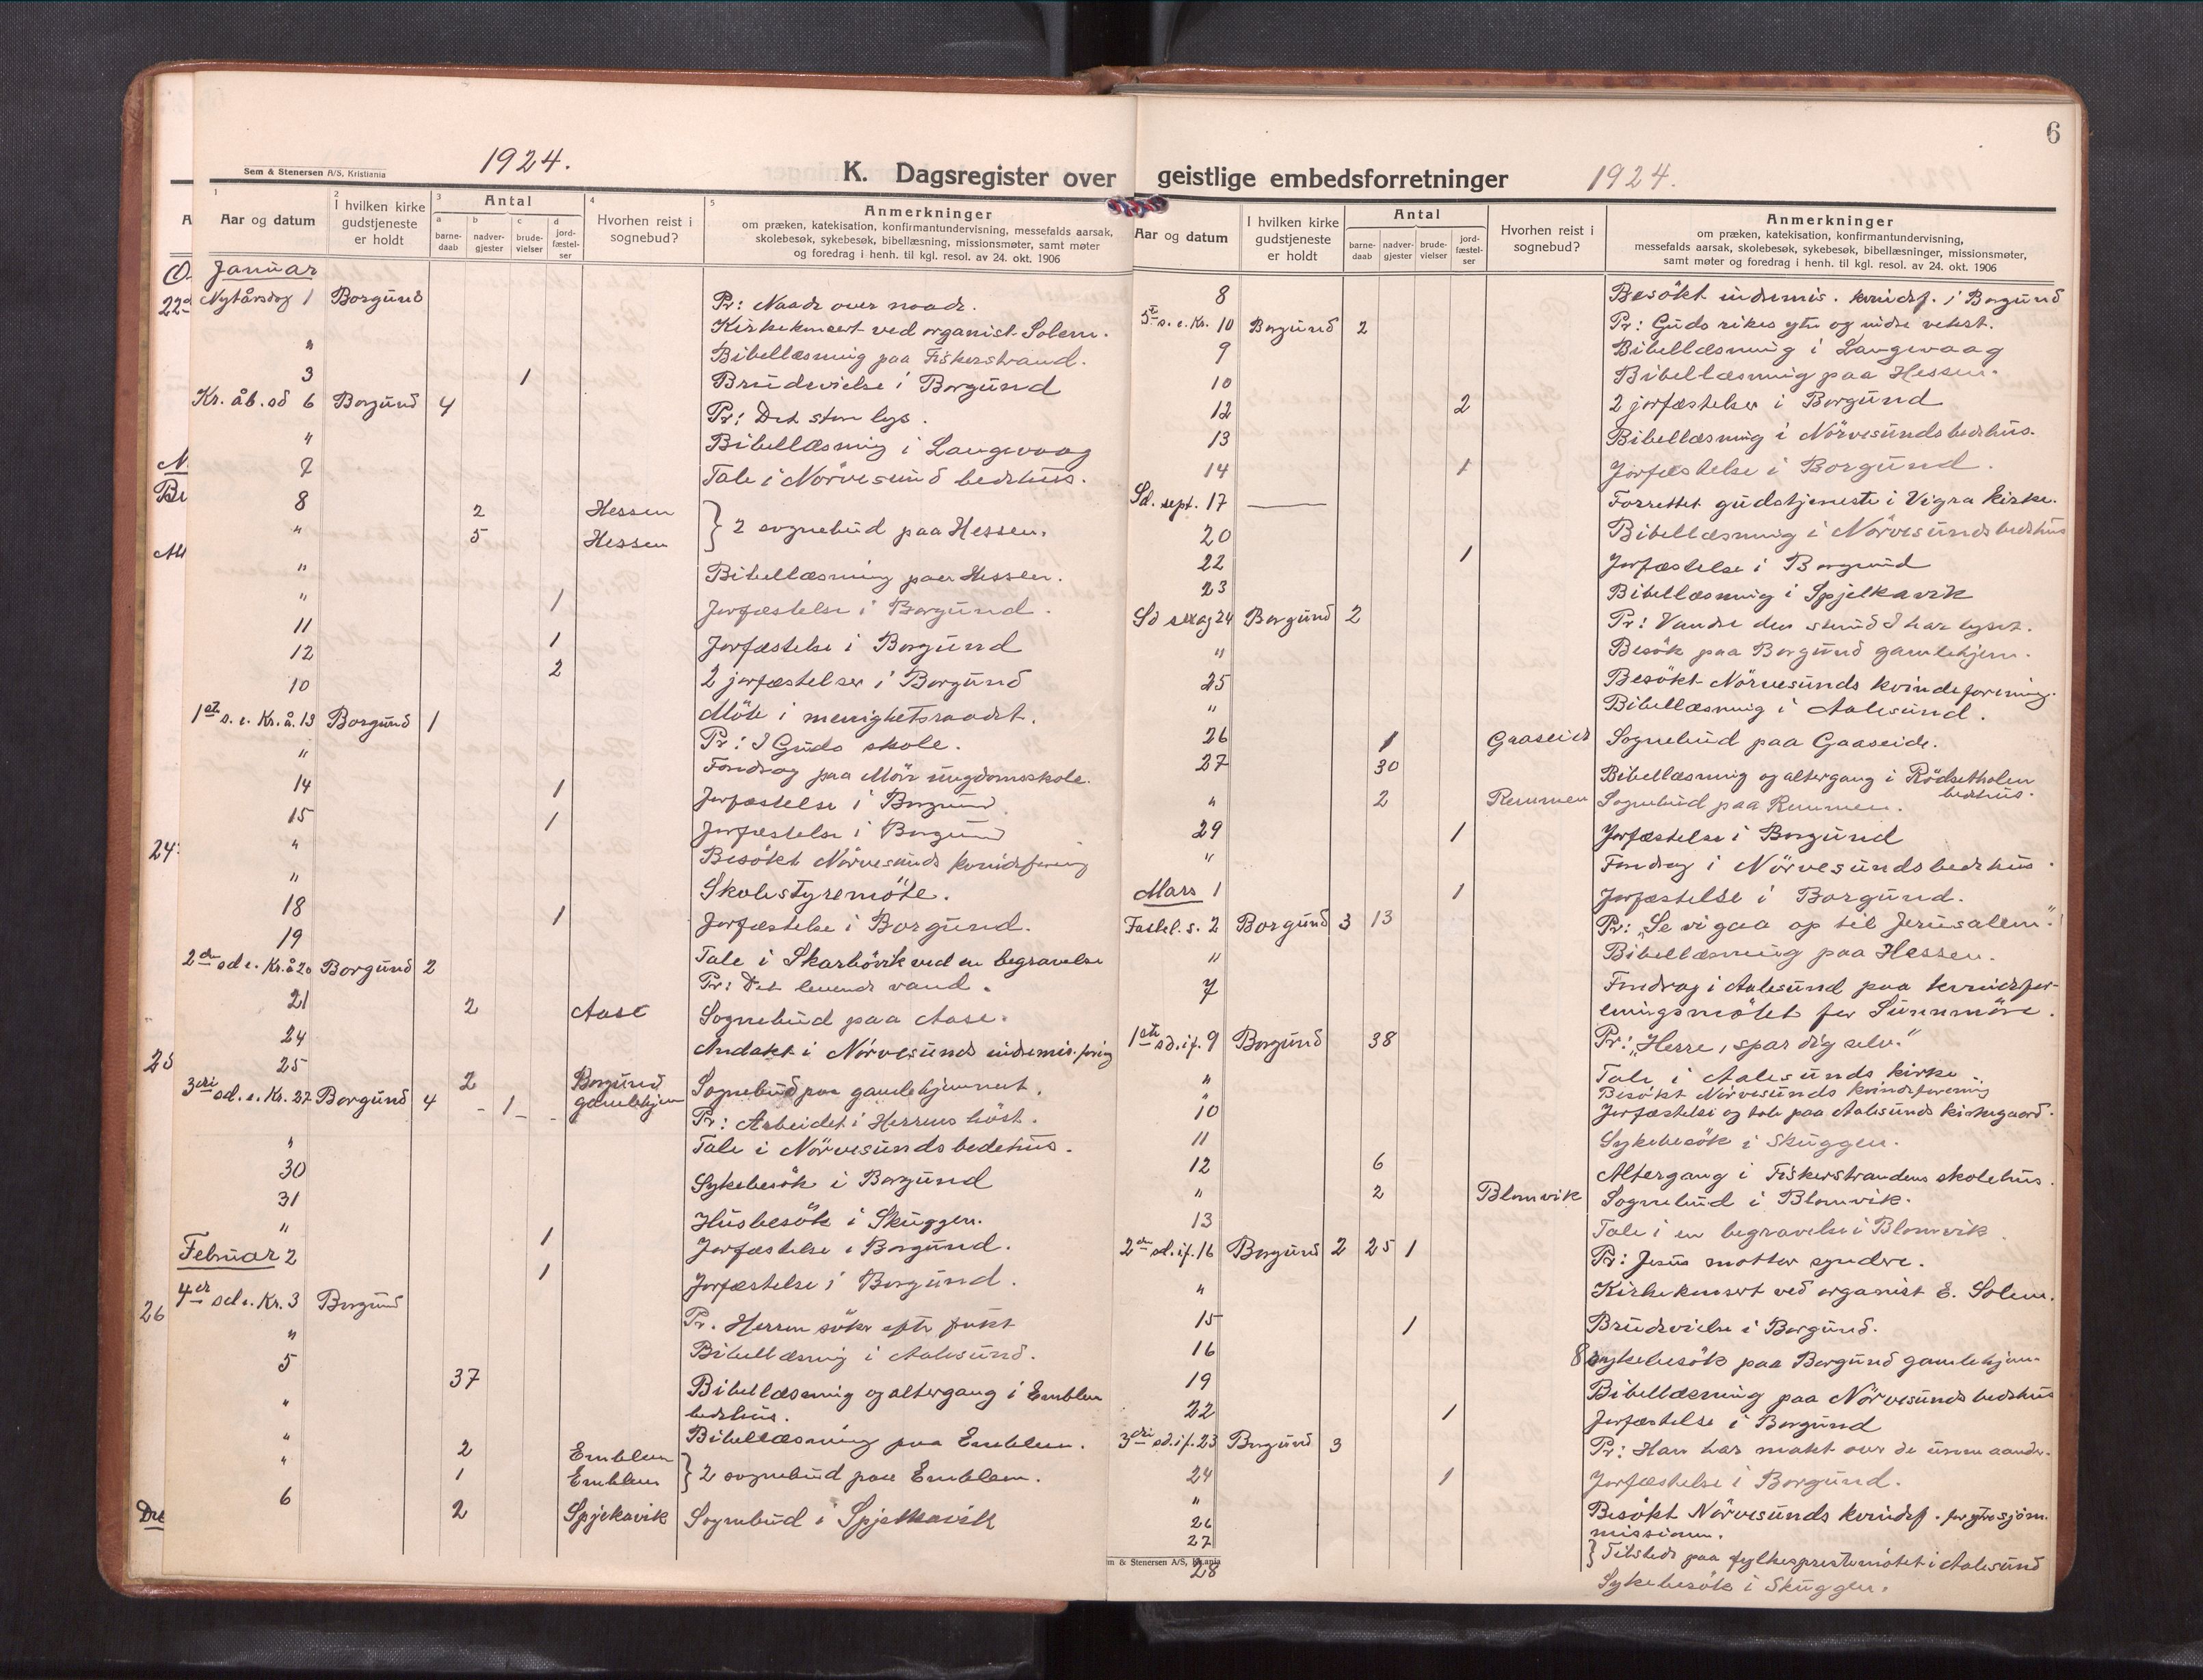 1924.
Sem & Stenersen A/S, Kristiania
K. Dagsregister over
1 Aar og datum
2 I hvilken kirke gudstjeneste er holdt
3 Antal
a barne-daab b nadver-gjester c brude-vielser d jord-fæstel-ser
4 Hvorhen reist i sognebud?
5 Anmerkninger
om præken, katekisation, konfirmantundervisning, messefalds aarsak,
skolebesøk, sykebesøk, bibellæsning, missionsmøter, samt møter
og foredrag i henh. til kgl. resol. av 24. okt. 1906
Januar
Nytårsdag 1 Borgund Pr: Naade over naade.
Kirkekonsert ved organist Solem.
" Bibellæsning paa Fiskerstrand.
3 1 Brudevielse i Borgund
Kr. åb. sd 6 Borgund 4 Pr: Det store lys.
" Bibellæsning i Langevaag
7 Tale i Nörvesund bedehus.
8 2 Hessen
" 5 Hessen } 2 sognebud paa Hessen.
" Bibellæsning paa Hessen.
" 1 Jorfæstelse i Borgund.
11 1 Jorfæstelse i Borgund
12 2 2 jorfæstelser i Borgund
10 Möte i menighetsraadet.
1ste s. e. Kr. å. 13 Borgund 1 Pr: I Guds skole.
" Foredrag paa Möre ungdomsskole.
14 1 Jorfæstelse i Borgund
15 1 Jorfæstelse i Borgund
" Besökt Nörvesunds kvindeforening
" Skolestyremöte.
18 1 Jorfæstelse i Borgund.
19 Tale i Skarbövik ved en begravelse
2den sd e. Kr. å 20 Borgund 2 Pr: Det levende vand.
21 2 Aase Sognebud paa Aase.
24 Andakt i Nörvesunds indremis. foring
25 2 Borgund gamlehjem Sognebud paa gamlehjemmet.
3dri sd. e. Kr. 27 Borgund 4 - 1 - - Pr: Arbeidet i Herrens höst.
" Tale i Nörvesunds bedehus.
30 Sykebesök i Borgund
31 Husbesök i Skuggen.
" 1 Jorfæstelse i Borgund.
Februar 2 1 Jorfæstelse i Borgund.
4er sd e. Kr. 3 Borgund Pr. Herren söker efter frukt
" Bibellæsning i Aalesund.
5 37 Bibellæsning og altergang i Emblem
bedehus.
" Bibellæsning paa Emblem.
" 2 Emblem
" 1 Emblem } 2 sognebud paa Emblem.
6 2 Spjelkavik Sognebud i Spjelkavik
6
geistlige embedsforretninger
1924.
Aar og datum
I hvilken kirke gudstjeneste er holdt
Antal
barne-daab nadver-gjester brude-vielser jord-fæstel-ser
Hvorhen reist i sognebud?
Anmerkninger
om præken, katekisation, konfirmantundervisning,
messefalds aarsak, skolebesøk, sykebesøk, bibellæsninger, missionsmøter,
samt møter og foredrag i henh. til kgl. resol. av 24. okt. 1906
8 Besökt indremis. kvindef. i Borgund
5te s. e. Kr. 10 Borgund 2 Pr: Guds rikes ytre og indre vekst.
9 Bibellæsning i Langevaag
10 Bibellæsning paa Hessen.
12 2 2 jorfæstelser i Borgund
13 Bibellæsning i Nörvesunds bedehus.
14 1 Jorfæstelse i Borgund.
Sd. sept. 17 — Forrettet gudstjeneste i Vigra kirke.
20 Bibellæsning i Nörvesunds bedehus
22 1 Jorfæstelse i Borgund
23 Bibellæsning i Spjelkavik
Sd sexag 24 Borgund 2 Pr: Vandre den stund I har lyset.
" Besök paa Borgund gamlehjem.
25 Besökt Nörvesunds kvindeforening.
" Bibellæsning i Aalesund.
26 1 Gaaseide Sognebud paa Gaaseide.
27 30 Bibellæsning og altergang i Rödsetholen
bedehus.
" 2 Remmen Sognebud paa Remmen.
29 1 Jorfæstelse i Borgund
" Foredrag i Nörvesunds bedehus.
Mars 1 1 Jorfæstelse i Borgund.
Fastel. s. 2 Borgund 3 13 Pr: „Se vi gaa op til Jerusalem."
" Bibellæsning paa Hessen.
7 Foredrag i Aalesund paa kvindefor-
eningsmötet for Sunnmöre.
1ste sd. i f. 9 Borgund 38 Pr: „Herre, spar dig selv."
" Tale i Aalesunds kirke.
" Besökt Nörvesunds kvindeforening
10 Jorfæstelse og tale paa Aalesunds kirkegaard.
11 Sykebesök i Skuggen.
12 6 Altergang i Fiskerstrandens skolehus.
" 2 Blomvik Sognebud i Blomvik.
13 Tale i en begravelse i Blomvik.
2den sd. i f. 16 Borgund 2 25 1 Pr: Jesus mottar syndere.
" Kirkekonsert ved organist E. Solem.
15 1 Brudevielse i Borgund.
16 8 Sykebesök paa Borgund gamlehjem
19 Bibellæsning paa Nörvesunds bedehus
22 1 Jorfæstelse i Borgund
3dri sd. i f. 23 Borgund 3 Pr: Han har makt over de urene aander.
24 1 Jorfæstelse i Borgund.
" Besökt Nörvesunds kvindef. for ytre sjöm.
missionen.
26
27 } Tilstede paa fylkesprestemötet i Aalesund
28 Sykebesök i Skuggen.